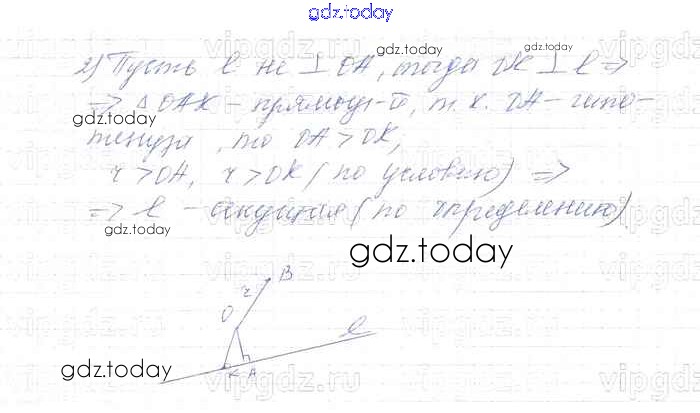 gdz.today
2) Пусть l не ⊥ OA, тогда OK ⊥ l ⇒
⇒ △ OAK – прямоуг-й, т.к. OA – гипо-
тенуза, то OA > OK,
r > OA, r > OK (по условию) ⇒
⇒ l – секущая (по определению)
gdz.today
gdz.today
gdz.today
gdz.today
gdz.today
B
r
O
l
K A
gdz.today